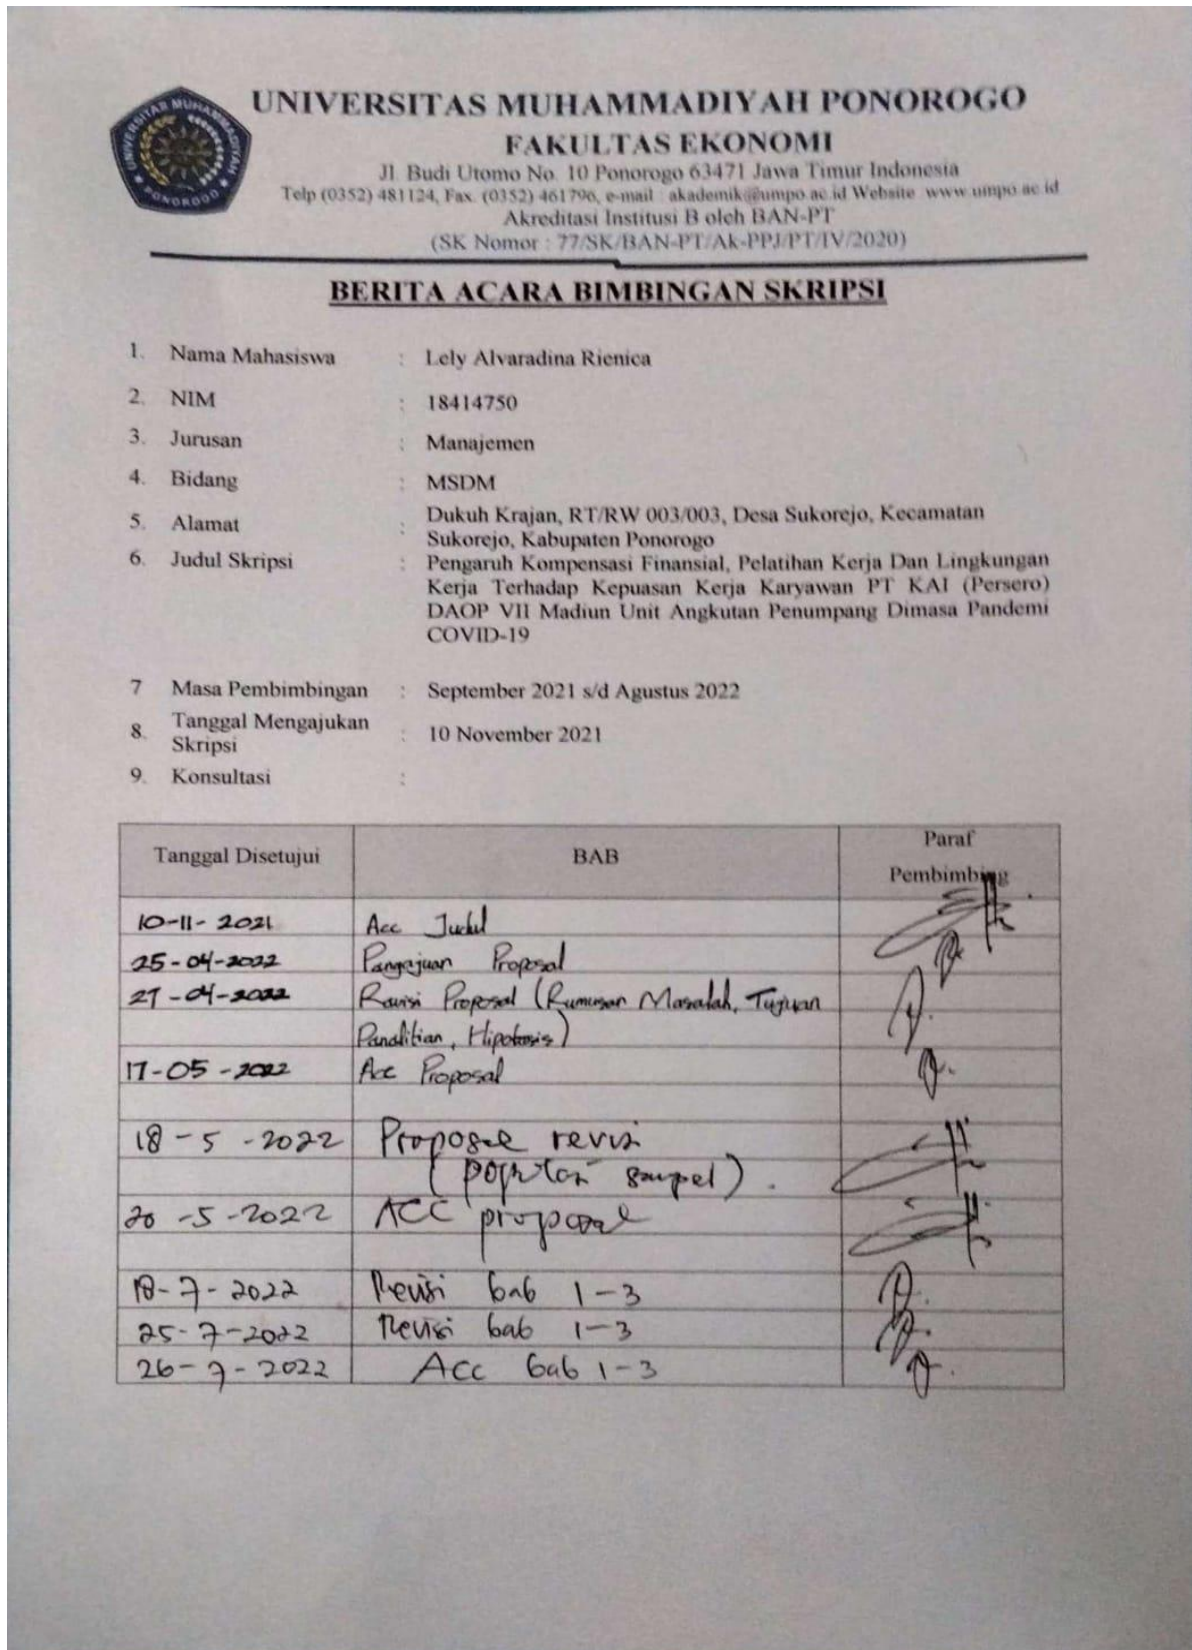 UNIVERSITAS MUHAMMADIYAH PONOROGO
UNIVERSITAS MUHAMMADIYAH PONOROGO
FAKULTAS EKONOMI
Jl. Budi Utomo No. 10 Ponorogo 63471 Jawa Timur Indonesia
Telp (0352) 481124, Fax. (0352) 461796, e-mail : akademik@umpo.ac.id Website www.umpo.ac.id
Akreditasi Institusi B oleh BAN-PT
(SK Nomor : 77/SK/BAN-PT/Ak-PPJ/PT/IV/2020)
BERITA ACARA BIMBINGAN SKRIPSI
1. Nama Mahasiswa : Lely Alvaradina Rienica
2. NIM : 18414750
3. Jurusan : Manajemen
4. Bidang : MSDM
5. Alamat : Dukuh Krajan, RT/RW 003/003, Desa Sukorejo, Kecamatan
Sukorejo, Kabupaten Ponorogo
6. Judul Skripsi : Pengaruh Kompensasi Finansial, Pelatihan Kerja Dan Lingkungan
Kerja Terhadap Kepuasan Kerja Karyawan PT KAI (Persero)
DAOP VII Madiun Unit Angkutan Penumpang Dimasa Pandemi
COVID-19
7 Masa Pembimbingan : September 2021 s/d Agustus 2022
8. Tanggal Mengajukan
Skripsi : 10 November 2021
9. Konsultasi :
Tanggal Disetujui BAB Paraf
Pembimbing
10-11-2021 Acc Judul
25-04-2022 Pengajuan Proposal
27-04-2022 Revisi Proposal (Rumusan Masalah, Tujuan
Penelitian, Hipotesis)
17-05-2022 Acc Proposal
18-5-2022 Proposal revisi
(populasi sampel).
20-5-2022 ACC proposal
18-7-2022 Revisi bab 1-3
25-7-2022 Revisi bab 1-3
26-7-2022 Acc bab 1-3